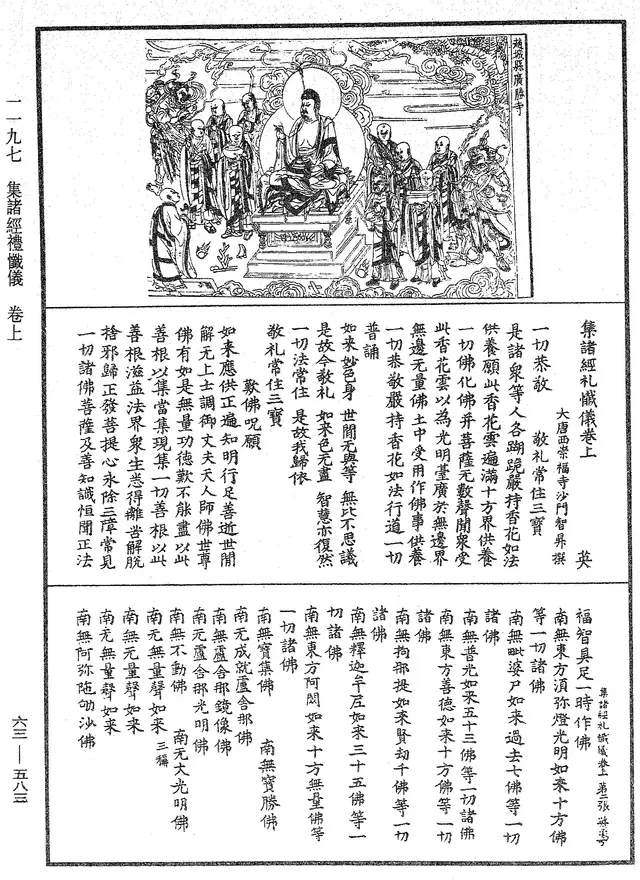 一一九七　集諸經禮懺儀　卷上
趙城縣廣勝寺
集諸經礼懺儀卷上　英
大唐西崇福寺沙門智昇撰
一切恭敬　敬礼常住三寶
是諸衆等人各𨂻跪嚴持香花如法
供養願此香花雲遍滿十方界供養
一切佛化佛并菩薩无數聲聞衆受
此香花雲以為光明臺廣於無邊界
無邊无量佛土中受用作佛事供養
一切恭敬嚴持香花如法行道一切
普誦
如来妙色身　世間无與等　無比不思議
是故今敬礼　如来色无盡　智慧亦復然
一切法常住　是故我歸依
敬礼常住三寶
歎佛呪願
如来應供正遍知明行足善逝世間
解无上士調御丈夫天人師佛世尊
佛有如是無量功德歎不能盡以此
善根以集當集現集一切善根以此
善根滋益法界衆生悉得離苦解脫
捨邪歸正發菩提心永除三障常見
一切諸佛菩薩及善知識恒聞正法
集諸經礼懺儀卷上　第二張　英字号
福智具足一時作佛
南無東方湏弥燈光明如来十方佛
等一切諸佛
南無毗婆尸如来過去七佛等一切
諸佛
南無普光如来五十三佛等一切諸佛
南無東方善德如来十方佛等一切
諸佛
南無拘那提如来賢劫千佛等一切
諸佛
南無釋迦牟尼如来三十五佛等一
切諸佛
南無東方阿閦如来十方無量佛等
一切諸佛
南無寶集佛　南無寶勝佛
南无成就盧舍那佛
南無盧舍那鏡像佛
南无盧舍那光明佛
南無不動佛　南无大光明佛
南无無量聲如来　三稱
南無无量聲如来
南无無量聲如来
南無阿弥陁劬沙佛
六三—五八三